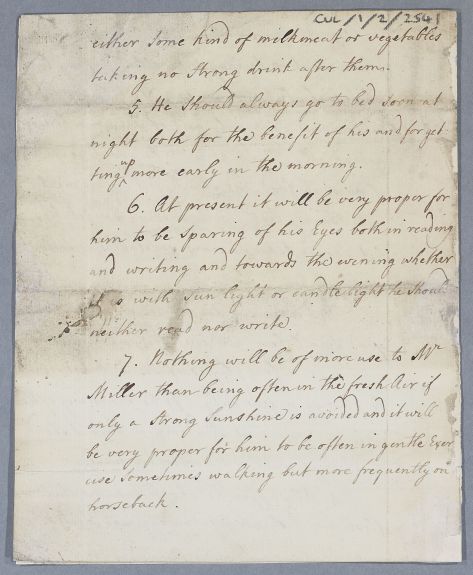 CUL/1/2/2541
either some kind of milkmeat or vegetables
taking no strong drink after them.
5. He should always go to bed soon at
night both for the benefit of his and for get
ting up more early in the morning.
6. At present it will be very proper for
him to be sparing of his Eyes both in reading
and writing and towards the evening whether
it is with sun light or candle light he should
neither read nor write.
7. Nothing will be of more use to Mr
Miller than being often in the fresh Air if
only a strong sunshine is avoided and it will
be very proper for him to be often in gentle Exer
cise sometimes walking but more frequently on
horseback.